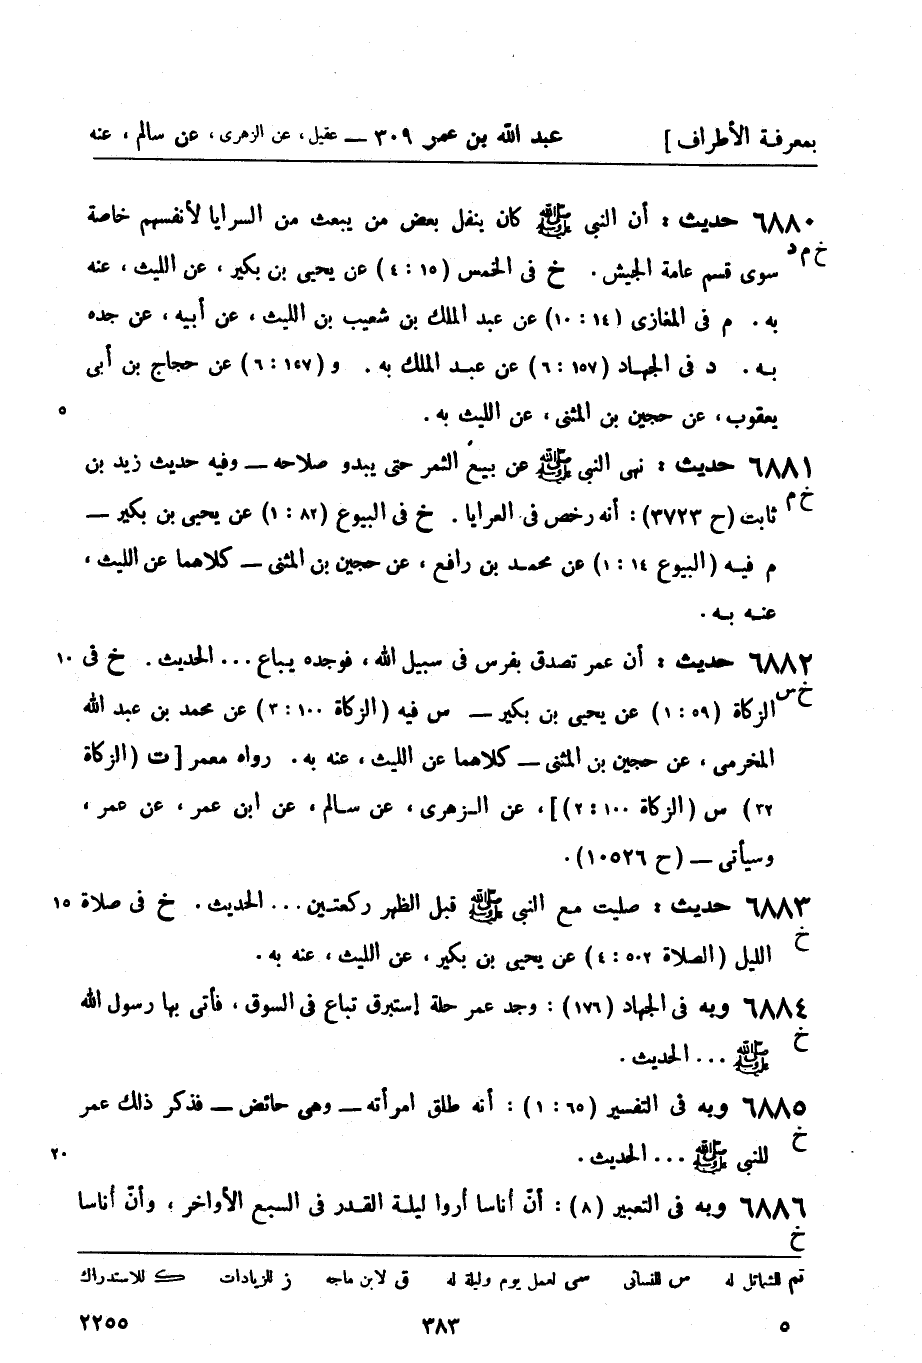 بمعرفة الأطراف] عبد الله بن عمر ٣٠٩ — عقيل، عن الزهرى، عن سالم، عنه
٦٨٨٠ حديث: أن النبي ﷺ كان ينفل بعض من يبعث من السرايا لأنفسهم خاصة
خ م د سوى قسم عامة الجيش. خ فى الخمس (١٥: ٤) عن يحيى بن بكير، عن الليث، عنه
به. م فى المغازى (١٤: ١٠) عن عبد الملك بن شعيب بن الليث، عن أبيه، عن جده
به. د فى الجهاد (١٥٧: ٦) عن عبد الملك به. و (١٤٧: ٦) عن حجاج بن أبى
يعقوب، عن حجين بن المثنى، عن الليث به. ٥
٦٨٨١ حديث: نهى النبي ﷺ عن بيع الثمر حتى يبدو صلاحه — وفيه حديث زيد بن
خ م ثابت (ح ٣٧٢٣): أنه رخص فى العرايا. خ فى البيوع (٨٢: ١) عن يحيى بن بكير —
م فيه (البيوع ١٤: ١) عن محمد بن رافع، عن حجين بن المثنى — كلاهما عن الليث،
عنه به.
٦٨٨٢ حديث: أن عمر تصدق بفرس فى سبيل الله، فوجده يباع... الحديث. خ فى ١٠
خ س الزكاة (٥٩: ١) عن يحيى بن بكير — س فيه (الزكاة ١٠٠: ٣) عن محمد بن عبد الله
المخرمى، عن حجين بن المثنى — كلاهما عن الليث، عنه به. رواه معمر [ت (الزكاة
٣٢) س (الزكاة ١٠٠: ٢)]، عن الزهرى، عن سالم، عن ابن عمر، عن عمر،
وسيأتى — (ح ١٠٥٢٦).
٦٨٨٣ حديث: صليت مع النبي ﷺ قبل الظهر ركعتين... الحديث. خ فى صلاة ١٥
خ الليل (الصلاة ٥٠٢: ٤) عن يحيى بن بكير، عن الليث، عنه به.
٦٨٨٤ وبه فى الجهاد (١٧٦): وجد عمر حلة إستبرق تباع فى السوق، فأتى بها رسول الله
خ ﷺ... الحديث.
٦٨٨٥ وبه فى التفسير (٦٥: ١): أنه طلق امرأته — وهى حائض — فذكر ذلك عمر
خ للنبي ﷺ... الحديث. ٢٠
٦٨٨٦ وبه فى التعبير (٨): أنّ أناسا أروا ليلة القدر فى السبع الأواخر، وأنّ أناسا
خ
تم للشمائل له س للنسائى سى لعمل يوم وليلة له ق لابن ماجه ز للزيادات ك للاستدراك
٥ ٣٨٣ ٢٢٥٥